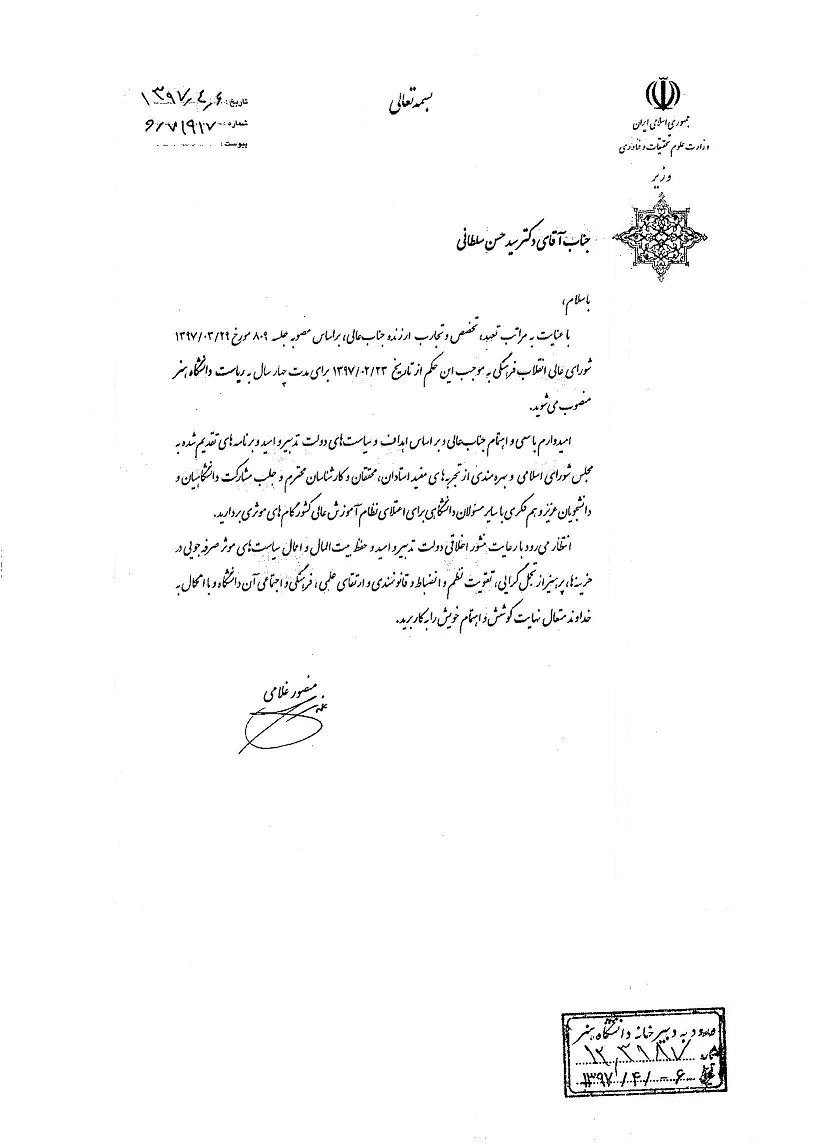 بسمه تعالی
جمهوری اسلامی ایران
وزارت علوم تحقیقات و فناوری
وزیر
تاریخ: ۱۳۹۷/۴/۶
شماره:
پیوست:
جناب آقای دکتر سید حسن سلطانی
با سلام،
با عنایت به مراتب تعهد، تخصص و تجارب ارزنده جناب‌عالی، براساس مصوبه جلسه ۸۰۹ مورخ ۱۳۹۷/۰۳/۲۹
شورای عالی انقلاب فرهنگی به موجب این حکم از تاریخ ۱۳۹۷/۰۲/۲۳ برای مدت چهار سال به ریاست دانشگاه هنر
منصوب می‌شوید.
امیدوارم با سعی و اهتمام جناب‌عالی و بر اساس اهداف و سیاست‌های دولت تدبیر و امید و برنامه‌های تقدیم شده به
مجلس شورای اسلامی و بهره‌مندی از تجربه‌های مفید استادان، محققان و کارشناسان محترم و جلب مشارکت دانشگاهیان و
دانشجویان عزیز و هم فکری با سایر مسئولان دانشگاهی برای اعتلای نظام آموزش عالی کشور گام‌های موثری بردارید.
انتظار می‌رود با رعایت منشور اخلاقی دولت تدبیر و امید و حفظ بیت‌المال و اعمال سیاست‌های موثر صرفه‌جویی در
هزینه‌ها، پرهیز از تجمل گرایی، تقویت نظم و انضباط و قانونمندی و ارتقای علمی، فرهنگی و اجتماعی آن دانشگاه و با اتکال به
خداوند متعال نهایت کوشش و اهتمام خویش را به کار برید.
منصور غلامی
ورود به دبیرخانه دانشگاه هنر
شماره
تاریخ ۱۳۹۷/۴/-۶